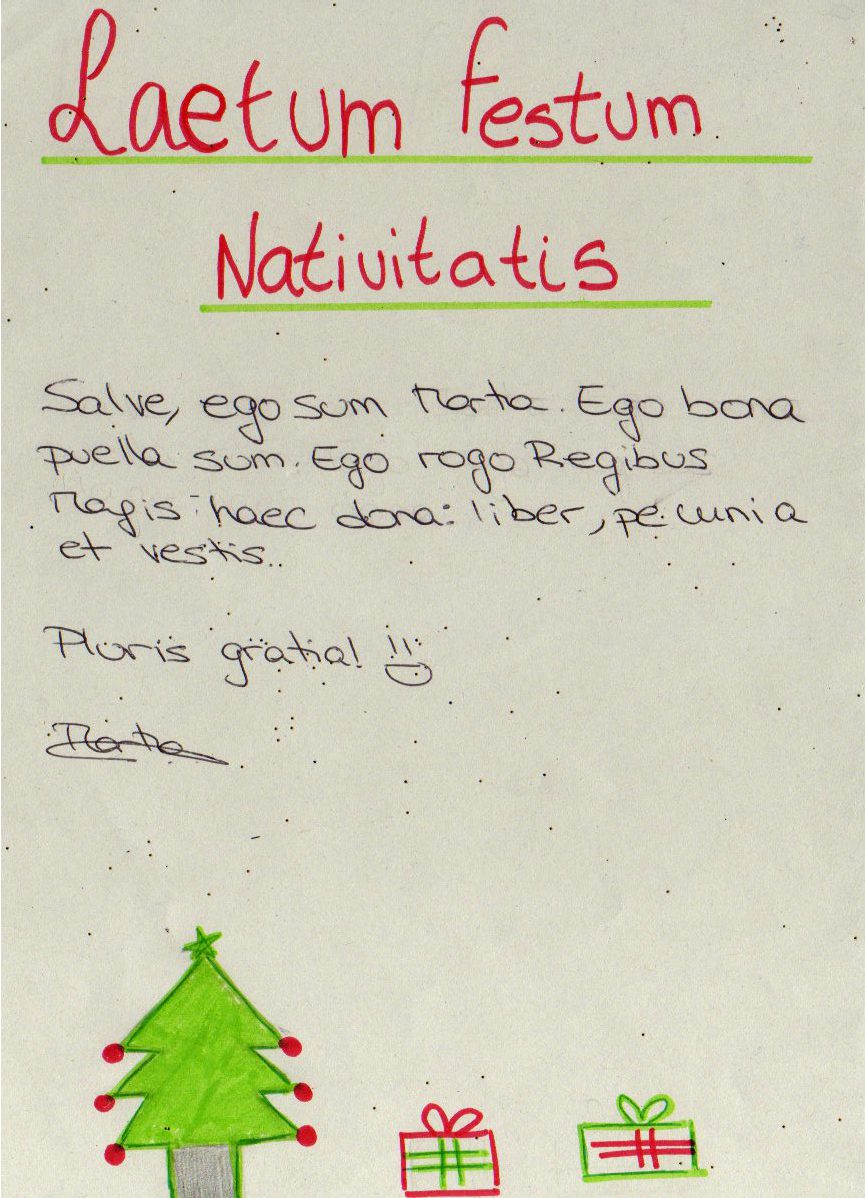 Laetum Festum
Nativitatis
Salve, ego sum Marta. Ego bona
puella sum. Ego rogo Regibus
Magis haec dona: liber, pecunia
et vestis.
Pluris gratia!
Marta